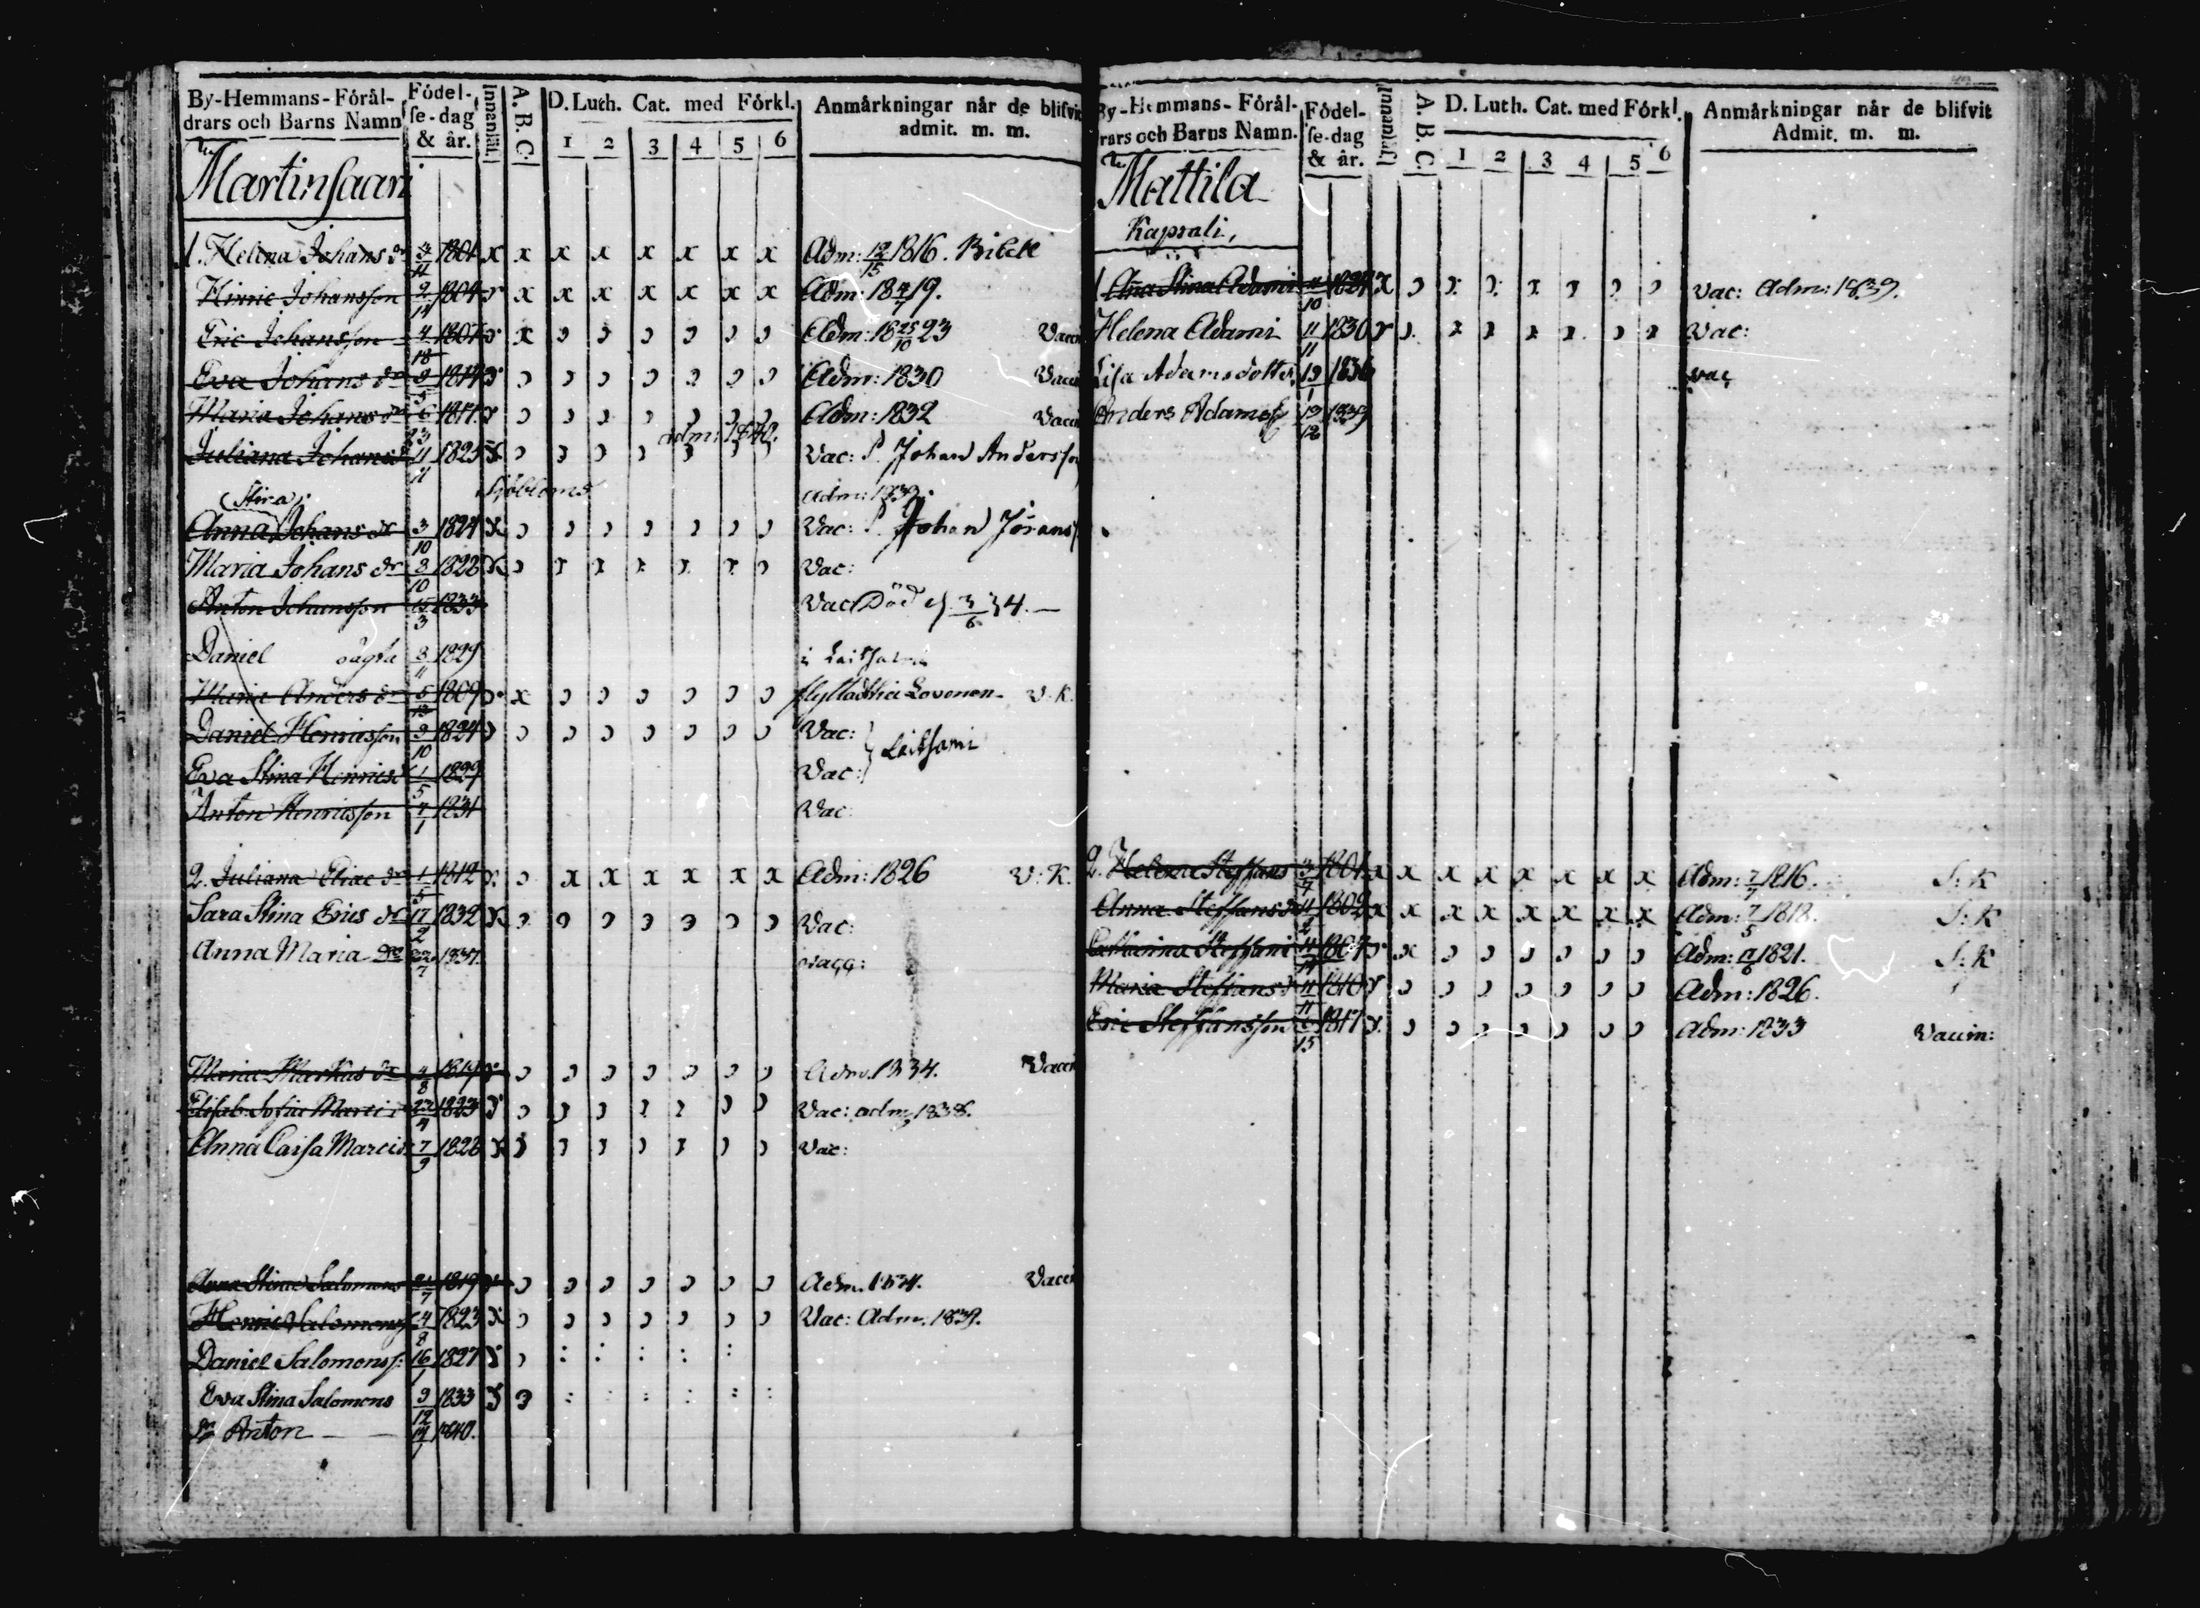 By-Hemmans-Förål-
drars och Barns Namn
Födel-
se-dag
& år.
Innanläs.
A. B. C.
D. Luth. Cat. med Förkl.
1 2 3 4 5 6
Anmärkningar når de blifvit
admit. m. m.
Martinsaari
1. Helena Johans dr 1801 x x x x x x x x Adm: 12/15 1816.
Hinric Johansson 1804 x x x x x x x Adm: 1819.
Eric Johansson 4/18 1807 x Adm: 18 25/10 23 Vaccin
Eva Johans dr 1814 Adm: 1830 Vaccin
Maria Johans dr Adm: 1832 Vaccin
adm: 1840.
Juliana Johans 11/11 1825 Vac: Johan Andersson
Stina Sjöbloms adm: 1839.
Anna Johans dr 3/10 1824 Vac: Johan Jöransson
Maria Johans dr 3/10 1828 Vac:
Anton Johansson 15/3 1833 Vac Död d. 3/6 34.
Daniel oägta 3/11 1829 i Leitsami
Maria Anders dr 5/12 1809 x flyttad V. K.
Daniel Henricsson 9/10 1824 Vac:
Leitsami
Eva Stina Henricsd 1/5 1829 Vac:
Anton Henricsson 7/1 1831 Vac
2. Juliana Eliae dr 1/5 1812 x x x x x x Adm: 1826 V. K.
Sara Stina Erics dr 17/2 1832 Vac:
Anna Maria dr 22/7 1837. vacc:
Maria Markus dr 4/8 1819 Adm. 1834. Vaccin
Elisab. Sofia Marci 22/4 1823 Vac: adm 1838.
Anna Caisa Marcis 7/9 1828 Vac:
Anna Stina Salomons 21/7 1819 Adm. 1834. Vaccin
Henric Salomons 4/8 1823 x Vac: Adm. 1839.
Daniel Salomonss: 16/1 1827
Eva Stina Salomons 9/12 1833
Anton 14/1 1840.
By-Hemmans-Förål-
drars och Barns Namn.
Födel-
se-dag
& år.
Innanläs.
A. B. C.
D. Luth. Cat. med Förkl.
1 2 3 4 5 6
Anmärkningar når de blifvit
Admit. m. m.
Mattila
Kaprali,
1 Anna Stina Adami 11/10 1824 x vac: Adm: 1839.
Helena Adami 11/11 1830 Vac:
Lisa Adamsdotter 19/1 1836 vac
Anders Adamss 13/12 1839
2. Helena Steffans 3/7 1801 x x x x x x x x Adm: 7/7 1816. S: K
Anna Steffans 1802 x x x x x x x x Adm: 7/5 1818. S: K
Catharina Steffans 1807 x Adm: 1821. S: K
Maria Steffans 11/11 1810 Adm: 1826.
Eric Steffansson 6/15 1817 Adm: 1833 Vaccin: